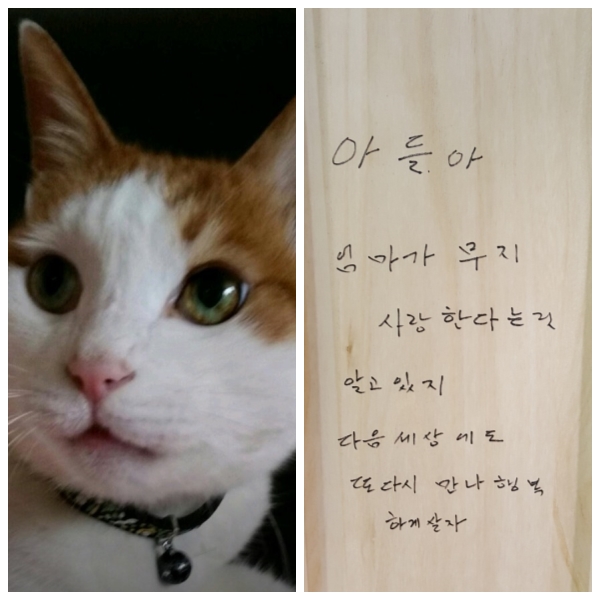 아들아
엄마가 무지
사랑한다는것
알고 있지
다음세상에도
또다시 만나 행복
하게살자